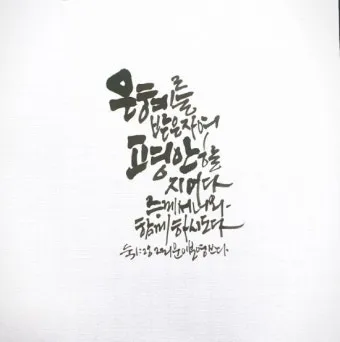 은혜를
받은자여
평안할
지어다
주께서너와
함께하시도다
눅1:28